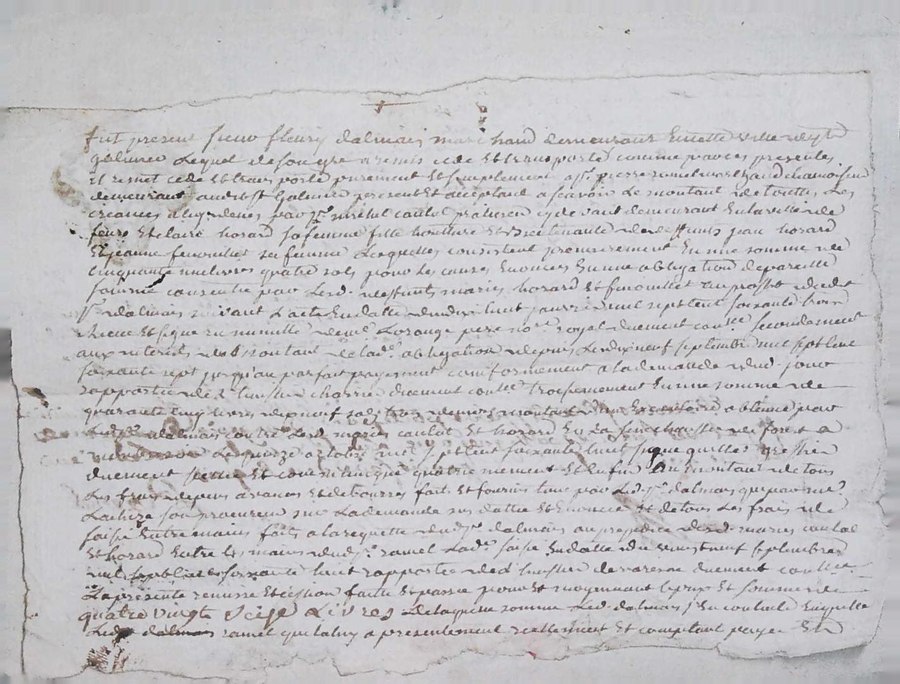 fut present sieur fleury dalmais marchand demeurant en cette ville de st
galmier Lequel de son gre a remis cede Et transporté comme par ces presentes
il remet cede Et transporte purement Et simplement a sr pierre ramel marchand chamoiseur
demeurant audit st Galmier present Et acceptant a scavoir Le montant de touttes Les
creances a luy dues par sr michel coulat praticien cy devant demeurant En la ville de
feurs Et claire horard sa femme fille heritiere Et Bientenante de deffunts jean horard
Et jeanne fenouillet sa femme Lesquelles consistent premierement En une somme de
Cinquante une livres quatre sols pour les causes Enoncees En une obligation de pareille
somme consentie par Lesd. deffunts maries horard Et fenouillet au proffit dudit
sr dalmais suivant L'acte En datte du dix huit janvier mil sept cent soixante trois
Recue Et signé En minutte de me Lorange pere nore royal duement conllé secondement
aux interets du montant de lade obligation depuis Le dix neuf septembre mil sept cent
soixante sept jusqu'au parfait payement conformement a la demande dud jour
rapportée de huissier duement conllé troisiemement En une somme de
quarante cinq livres dix neuf sols trois deniers montant d'un Executoire obtenu par
Led. sr dalmais contre Lesd. maries coulat Et horard En La senechaussee de forest a
Le quinze octobre mil sept cent soixante huit signé greffier
duement scellé Et quatriemement Et Enfin au montant de tous
Les frais depuis avances Et debourses faits Et fournis tant par Led. sr dalmais que par me
son procureur sur La demande sus dattée Et Enoncée Et de tous Les frais de
saisie Entre mains faits a la requette dud. sr dalmais au prejudice desd. maries coulat
Et horard Entre Les mains dud. sr ramel Lade saisie En datte du vingt neuf septembre
mil sept cent soixante huit rapportée de huissier duement conllée
La presente remise Et cession faitte Et passée pour Et moyennant Le prix Et somme de
quatre vingt seize Livres De laquelle somme Led. dalmais
Led. ramel qui la luy a presentement reellement Et comptant payée En